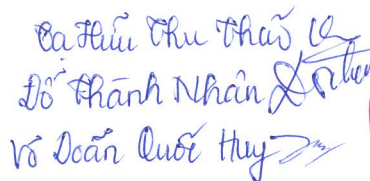 Tạ Hữu Thu Thảo
Đỗ Thành Nhân
Võ Doãn Quốc Huy